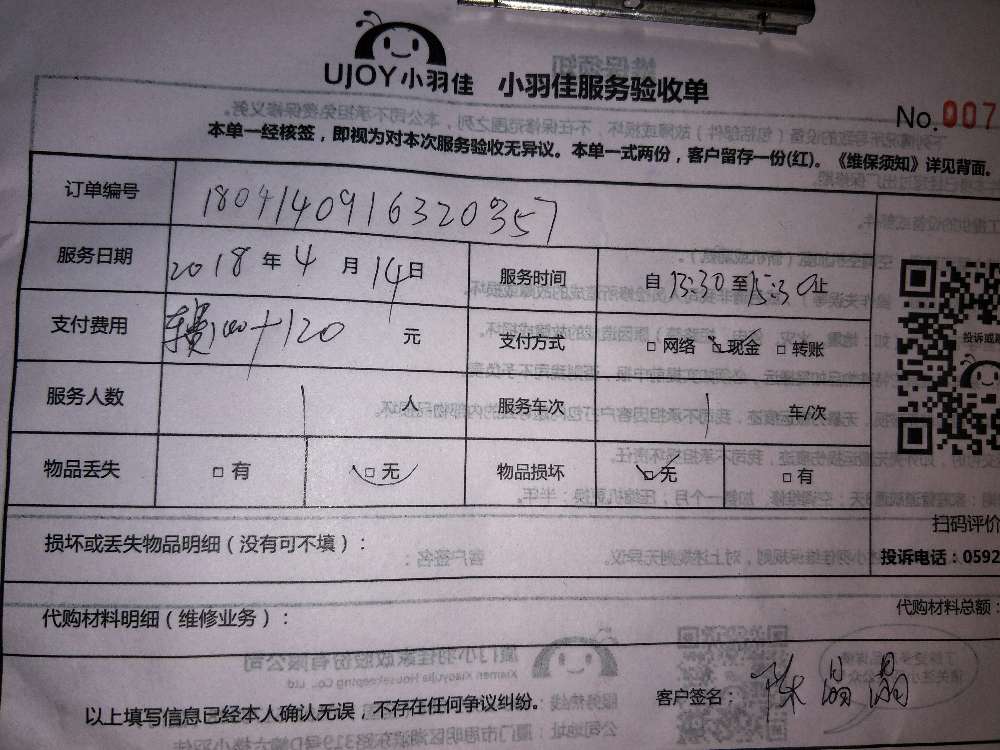 UJOY小羽佳 小羽佳服务验收单
No.007
本单一经核签，即视为对本次服务验收无异议。本单一式两份，客户留存一份(红)。《维保须知》详见背面。
订单编号 1804140916320357
服务日期 2018年4月14日 服务时间 自13:30至15:30止
支付费用 车费100+120元 支付方式 □网络 □现金 □转账
投诉或
服务人数 1人 服务车次 1车/次
物品丢失 □有 □无 物品损坏 □无 □有
扫码评价
损坏或丢失物品明细（没有可不填）：
投诉电话：0592
代购材料明细（维修业务）：
代购材料总额：
以上填写信息已经本人确认无误，不存在任何争议纠纷。
客户签名： 晶晶